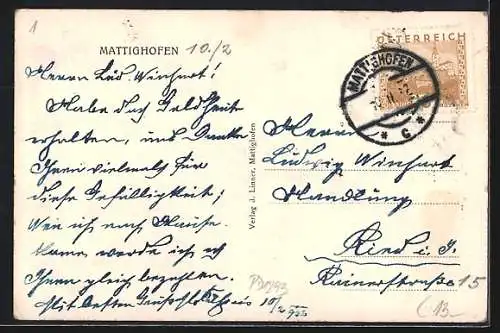 1
MATTIGHOFEN 10./2
Herrn Lud. Winhart!
Habe das Geld heute
erhalten, und danke
Ihnen vielmals für
diese Gefälligkeit;
Wen ich nach Hause
kome werde ich es
Ihnen gleich bezahlen.
Mit besten Gruß
10/2 935
Verlag J. Linner, Mattighofen
ÖSTERREICH
MATTIGHOFEN
* c *
Herrn
Ludwig Winhart
Handlung
Ried i. I.
Rainerstraße 15